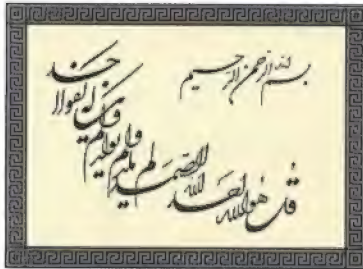 بسم الله الرحمن الرحیم
قل هو الله احد
الله الصمد
لم یلد
ولم یولد
ولم یکن له کفوا احد